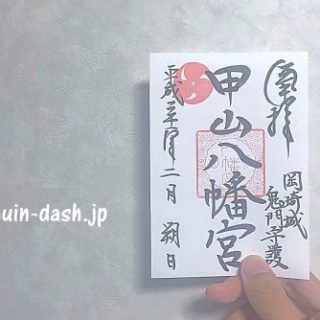 奉拝
岡崎城
鬼門守護
甲山八幡宮
平成三十一年二月朔日
uin-dash.jp